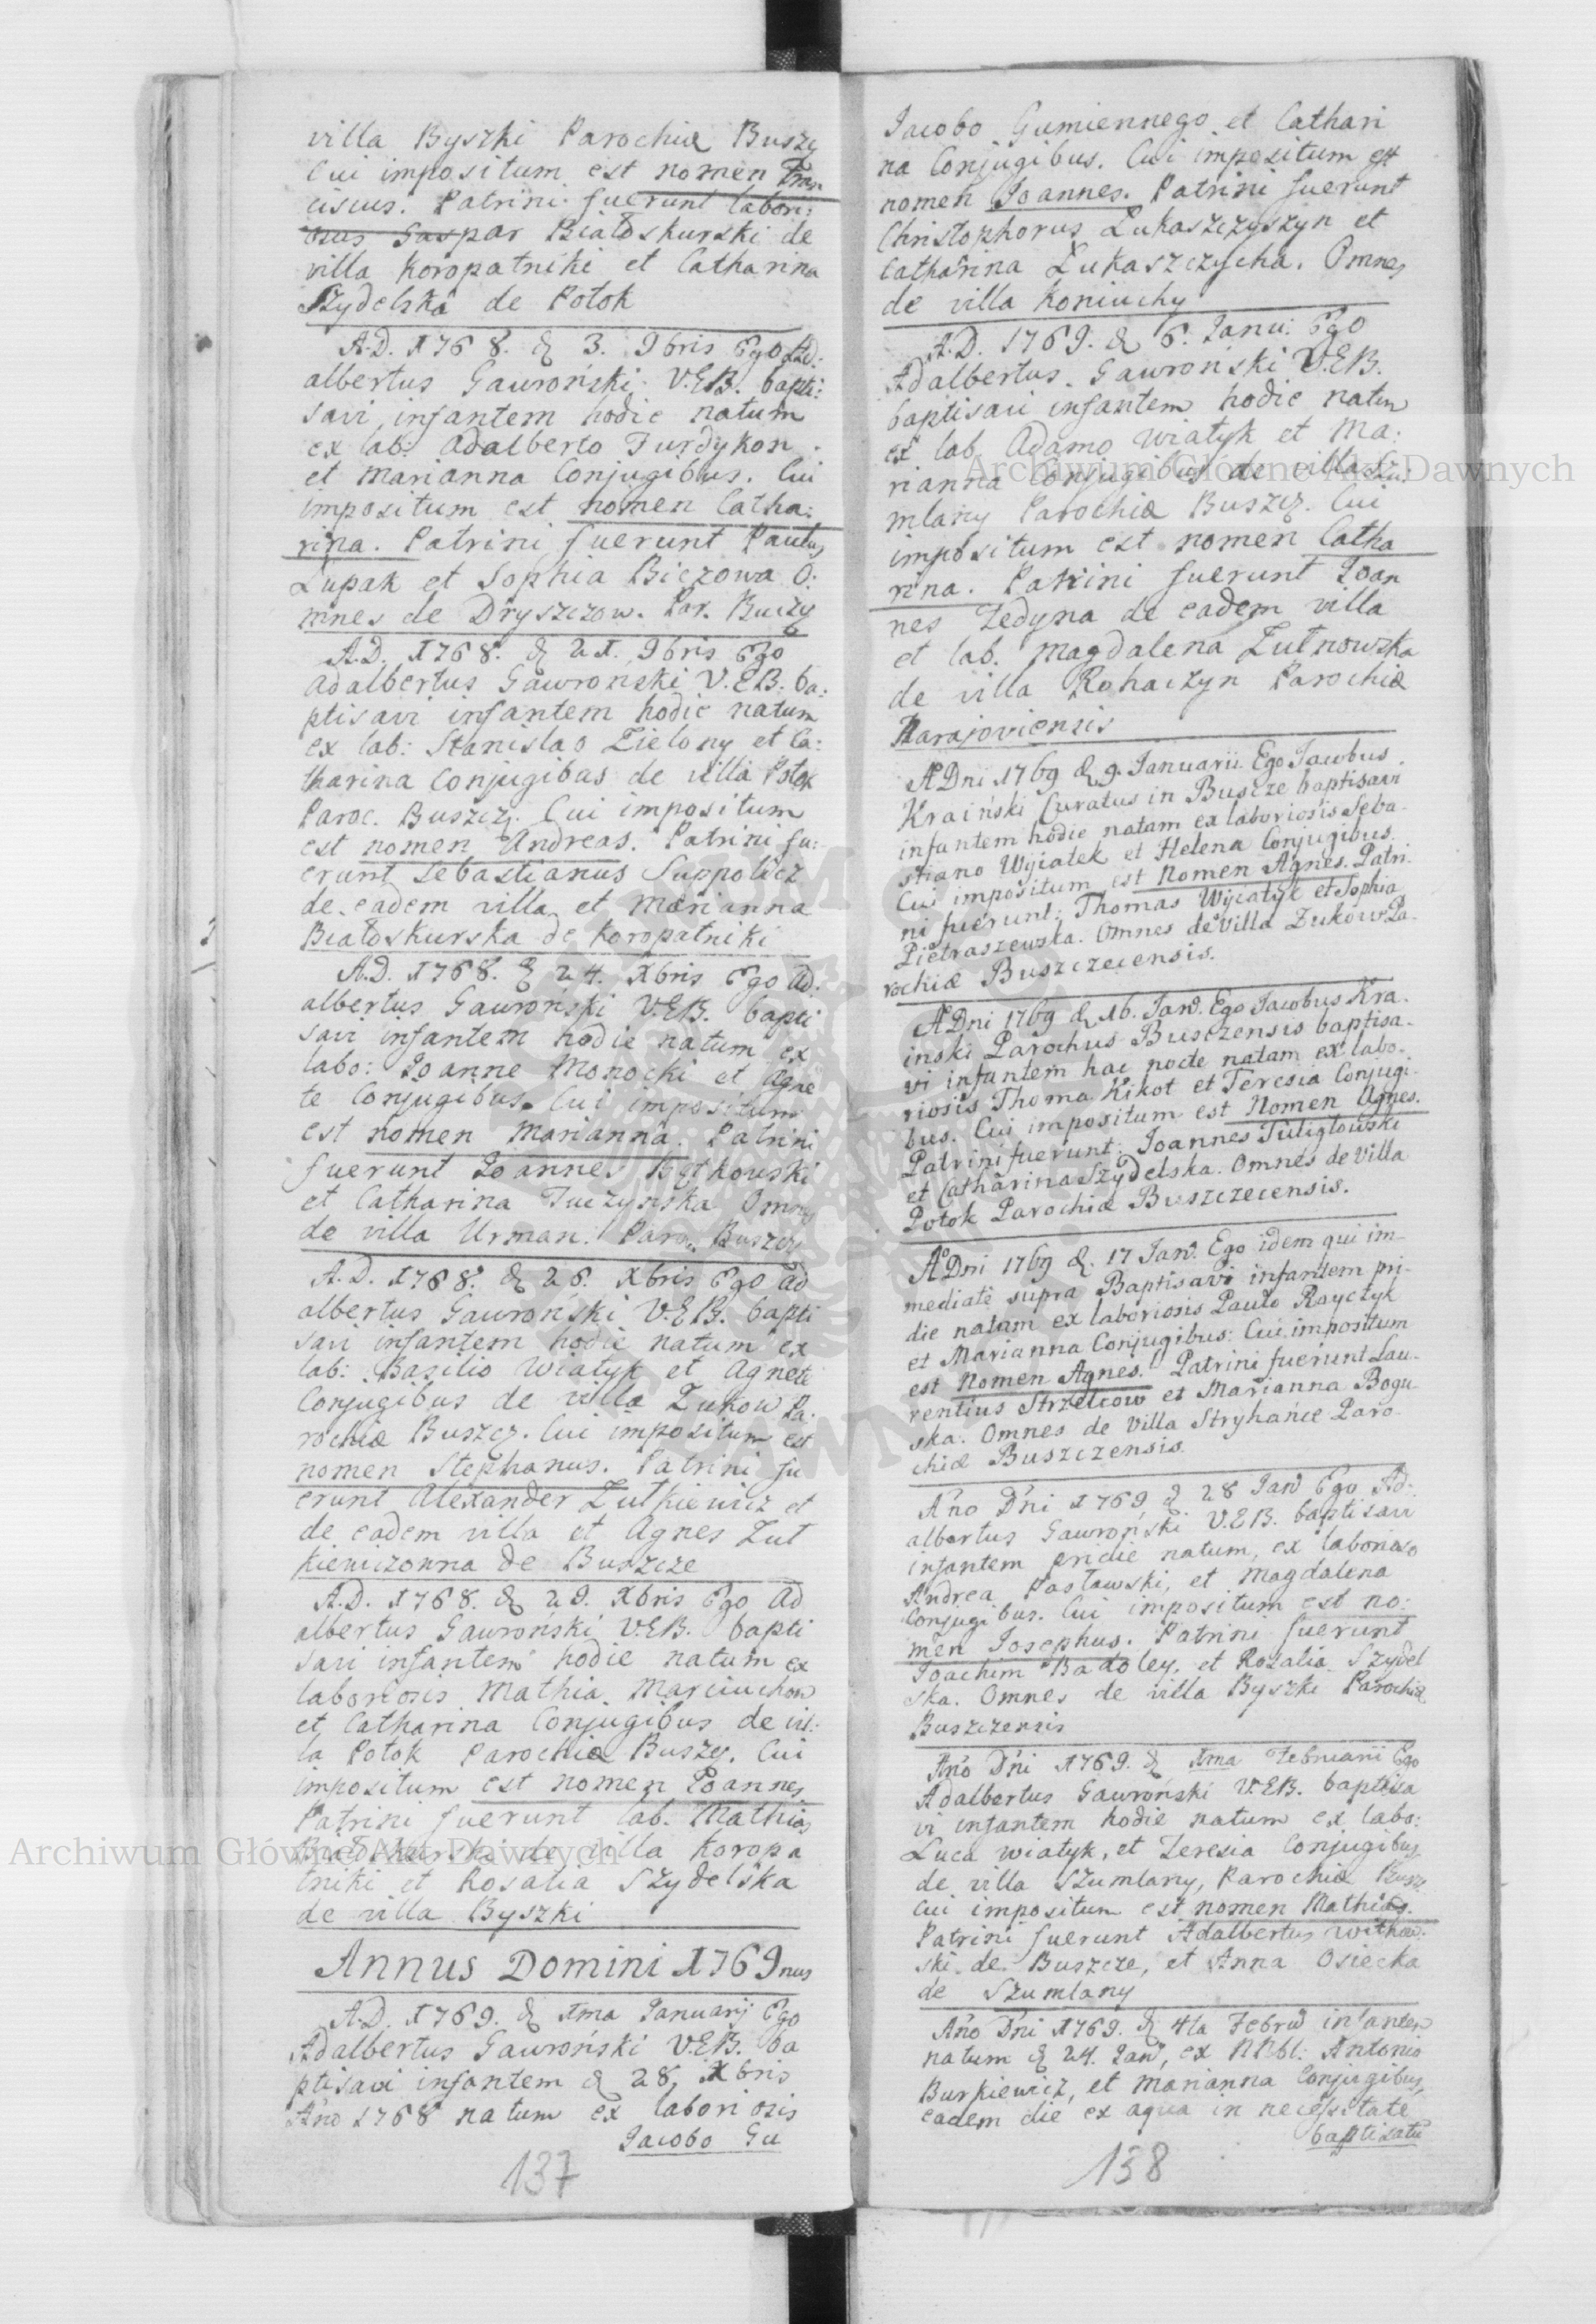 villa Byszki Parochiæ Buszcz
Cui impositum est nomen Fran
ciscus. Patrini fuerunt labori:
osus Gaspar Białoskurski de
villa Koropatniki et Catharina
Szydelska de Potok
A.D. 1768. d 3. 9bris Ego Ad:
albertus Gawroński V.E.B. bapti:
savi infantem hodie natum
ex lab: Adalberto Furdykon
et Marianna Conjugibus. Cui
impositum est nomen Catha:
rina. Patrini fuerunt Paulus
Łupak et Sophia Biczowa O:
mnes de Dryszczow. Par. Buczy
A.D. 1768. d 21. 9bris Ego
Adalbertus Gawronski V.E.B. ba:
ptisavi infantem hodie natum
ex lab: Stanislao Zielony et Ca:
tharina Conjugibus de villa Potok
Paroc. Buszcz. Cui impositum
est nomen Andreas. Patrini fu:
erunt Sebastianus Suppolicz
de eadem villa et Marianna
Białoskurska de Koropatniki
A.D. 1768. d 24. Xbris Ego Ad:
albertus Gawroński V.E.B. bapti
savi infantem hodie natum ex
labo: Joanne Monocki et Agne
te Conjugibus. Cui impositum
est nomen Marianna. Patrini
fuerunt Joannes
et Catharina Tuczynska Omnes
de villa Urman. Paro. Buszcz
A.D. 1768. d 26. Xbris Ego Ad
albertus Gawroński V.E.B. bapti
savi infantem hodie natum ex
lab: Basilio Wiatyk et Agnete
Conjugibus de villa Zukow Pa:
rochiæ Buszcz. Cui impositum est
nomen Stephanus. Patrini fu
erunt Alexander Zutkiewicz et
de eadem villa et Agnes Zut
kiewiczonna de Buszcze
A.D. 1768. d 29. Xbris Ego Ad
albertus Gawroński V.E.B. bapti
savi infantem hodie natum ex
laboriosis Mathia Marciuchow
et Catharina Conjugibus de vil:
la Potok Parochiæ Buszcz. Cui
impositum est nomen Joannes
Patrini fuerunt lab. Mathias
Białoskurski de villa Koropa
tniki et Rosalia Szydelska
de villa Byszki
Annus Domini 1769nus
A.D. 1769. d 1ma Januarij Ego
Adalbertus Gawroński V.E.B. ba
ptisavi infantem d 28, Xbris
Año 1768 natum ex laboriosis
Jacobo Gu
137
Jacobo Gumiennego et Cathari
na Conjugibus. Cui impositum est
nomen Joannes. Patrini fuerunt
Christophorus Łukaszczyszyn et
Catharina Łukaszczycha. Omnes
de villa Koniuchy
A.D. 1769. d 6. Janu: Ego
Adalbertus Gawroński V.E.B.
baptisavi infantem hodie natum
ex lab Adamo Wiatyk et Ma:
rianna Conjugibus de villa Szu:
mlany Parochiæ Buszcz. Cui
impositum est nomen Catha
rina. Patrini fuerunt Joan
nes Zedyna de eadem villa
et lab. Magdalena Zutnowska
de villa Rohaczyn Parochiæ
Narajoviensis
AºDni 1769 d 9. Januarii Ego Jacobus
Kraiński Curatus in Buscze baptisavi
infantem hodie natam ex laboriosis Seba-
stiano Wyiatek et Helena Conjugibus.
Cui impositum est Nomen Agnes. Patri
ni fuerunt: Thomas Wyiatyk et Sophia
Pietraszewska. Omnes de Villa Zuków Pa-
rochiæ Buszczecensis.
AºDni 1769 d 16. Janv. Ego Jacobus Kra-
inski Parochus Busczensis baptisa-
vi infantem hac nocte natam ex labo-
riosis Thoma Kikot et Teresia Conjugi-
bus. Cui impositum est Nomen Agnes.
Patrini fuerunt: Joannes Tuligłowski
et Catharina Szydelska. Omnes de Villa
Potok Parochiæ Buszczecensis.
AºDni 1769 d. 17 Janv. Ego idem qui im-
mediatè supra Baptisavi infantem pri-
die natam ex laboriosis Paulo Rayczyk
et Marianna Conjugibus: Cui impositum
est Nomen Agnes. Patrini fuerunt Lau-
rentius Strzelcow et Marianna Bogu-
ska. Omnes de Villa Stryhańce Paro-
chiæ Buszczensis.
Año Dñi 1769 d 28 Janv Ego Ad:
albertus Gawroński V.E.B. baptisavi
infantem pridie natum, ex laborioso
Andrea Pasławski, et Magdalena
Conjugibus. Cui impositum est no:
men Josephus. Patrini fuerunt
Joachim Badoley, et Rozalia Szydel
ska. Omnes de villa Byszki Parochiæ
Buszczensis
Año Dñi 1769. d 1ma Februarii Ego
Adalbertus Gawroński V.E.B. baptisa
vi infantem hodie natum ex labo:
Luca Wiatyk, et Teresia Conjugibus
de villa Szumlany, Parochiæ Buszcz
Cui impositum est nomen Mathias.
Patrini fuerunt Adalbertus Witkow:
ski de Buszcze, et Anna Osiecka
de Szumlany
Año Dñi 1769. d 4ta Febrv infantem
natum d 24. Janv, ex NNbl: Antonio
Burkiewicz, et Marianna Conjugibus,
eadem die ex aqua in necessitate
baptisatu
138
Archiwum Główne Akt Dawnych
Archiwum Główne Akt Dawnych